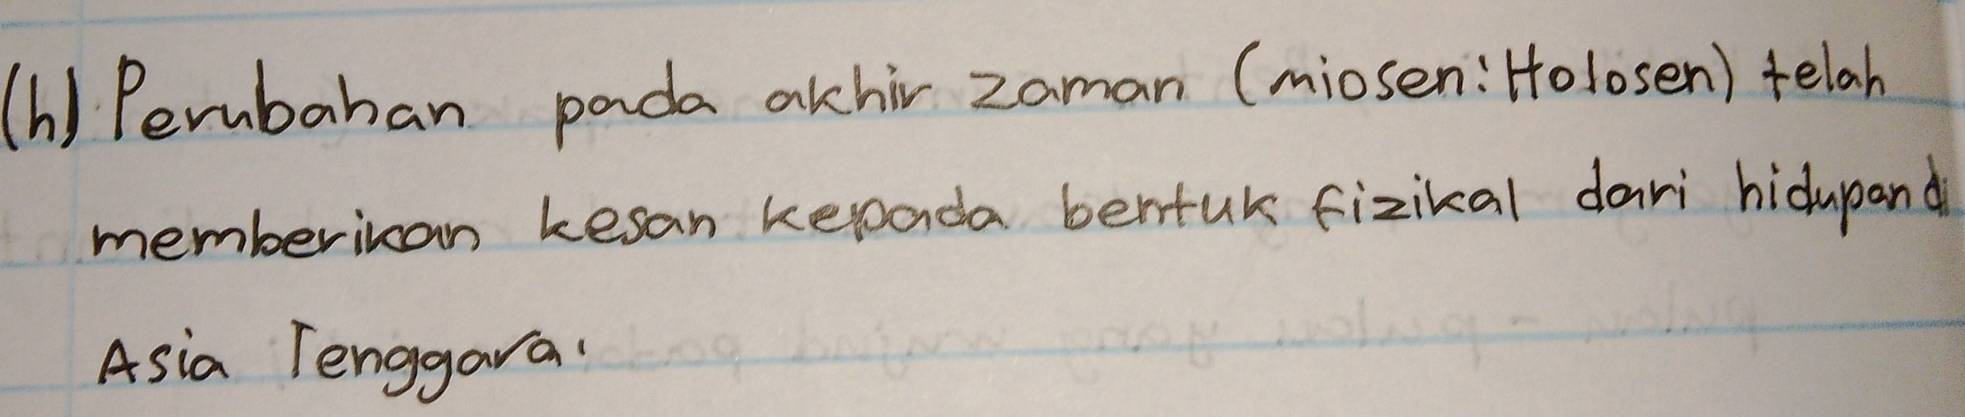 (h) Perubahan pada akhir zaman (miosen: Holosen) telah
memberikan kesan kepada bentuk fizikal dari hidupan di
Asia Tenggara.